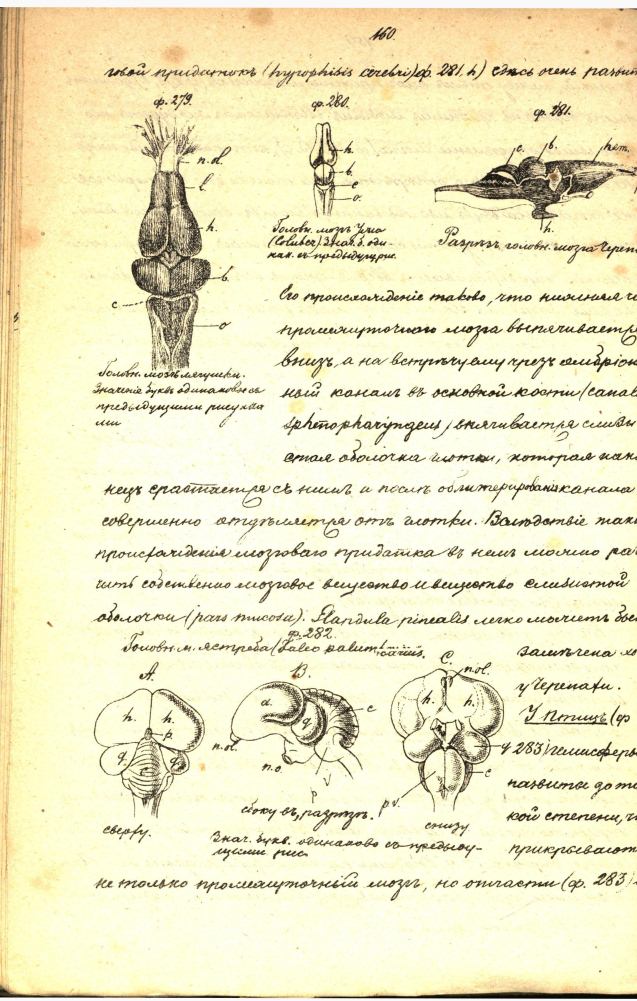 160.
говой придатокъ (hypophisis cerebri) ф. 281. h) здѣсь очень развит
ф. 279.
n.ol.
l.
h.
b.
c
o
Головн. мозгъ лягушки.
Значенiе буквъ одинаково съ
предыдущими рисунка
ми
ф. 280.
h.
b.
c
o.
Головн. мозгъ Ужа
(Coluber) Знач. б. оди-
нак. съ предыдущ. рис.
ф. 281.
c.
b.
hem.
h.
Разрѣзъ головн. мозга Череп
Его происхожденiе таково, что нижняя ч
промежуточного мозга выпячивается
внизъ, а на встрѣчу ему чрезъ эмбрiон
ный каналъ въ основной кости (canal
sphenopharyngeus) впячивается слизи
стая оболочка глотки, которая нако
нецъ срастается съ нимъ и послѣ облитерированiя канала
совершенно отдѣляется отъ глотки. Вслѣдствiе тако
происхожденiя мозгового придатка въ немъ можно раз
чить собственно мозговое вещество и вещество слизистой
оболочки (pars mucosa). Glandula pinealis легко можетъ бы
ф. 282.
Головн. м. ястреба (Falco palumbarius.
A.
h. h.
p.
q. q.
c
сверху.
B.
a.
q.
c
n.ol.
n.o.
p V
сбоку въ разрѣзѣ.
C.
n.ol.
h. h.
q
c
p.v.
снизу
Знач. букв. одинаково съ предыду-
щими рис.
замѣчена
у Черепахи.
У птицъ (ф
283) гемисферы
развиты до та
кой степени, ч
прикрываютъ
не только промежуточный мозгъ, но отчасти (ф. 283)